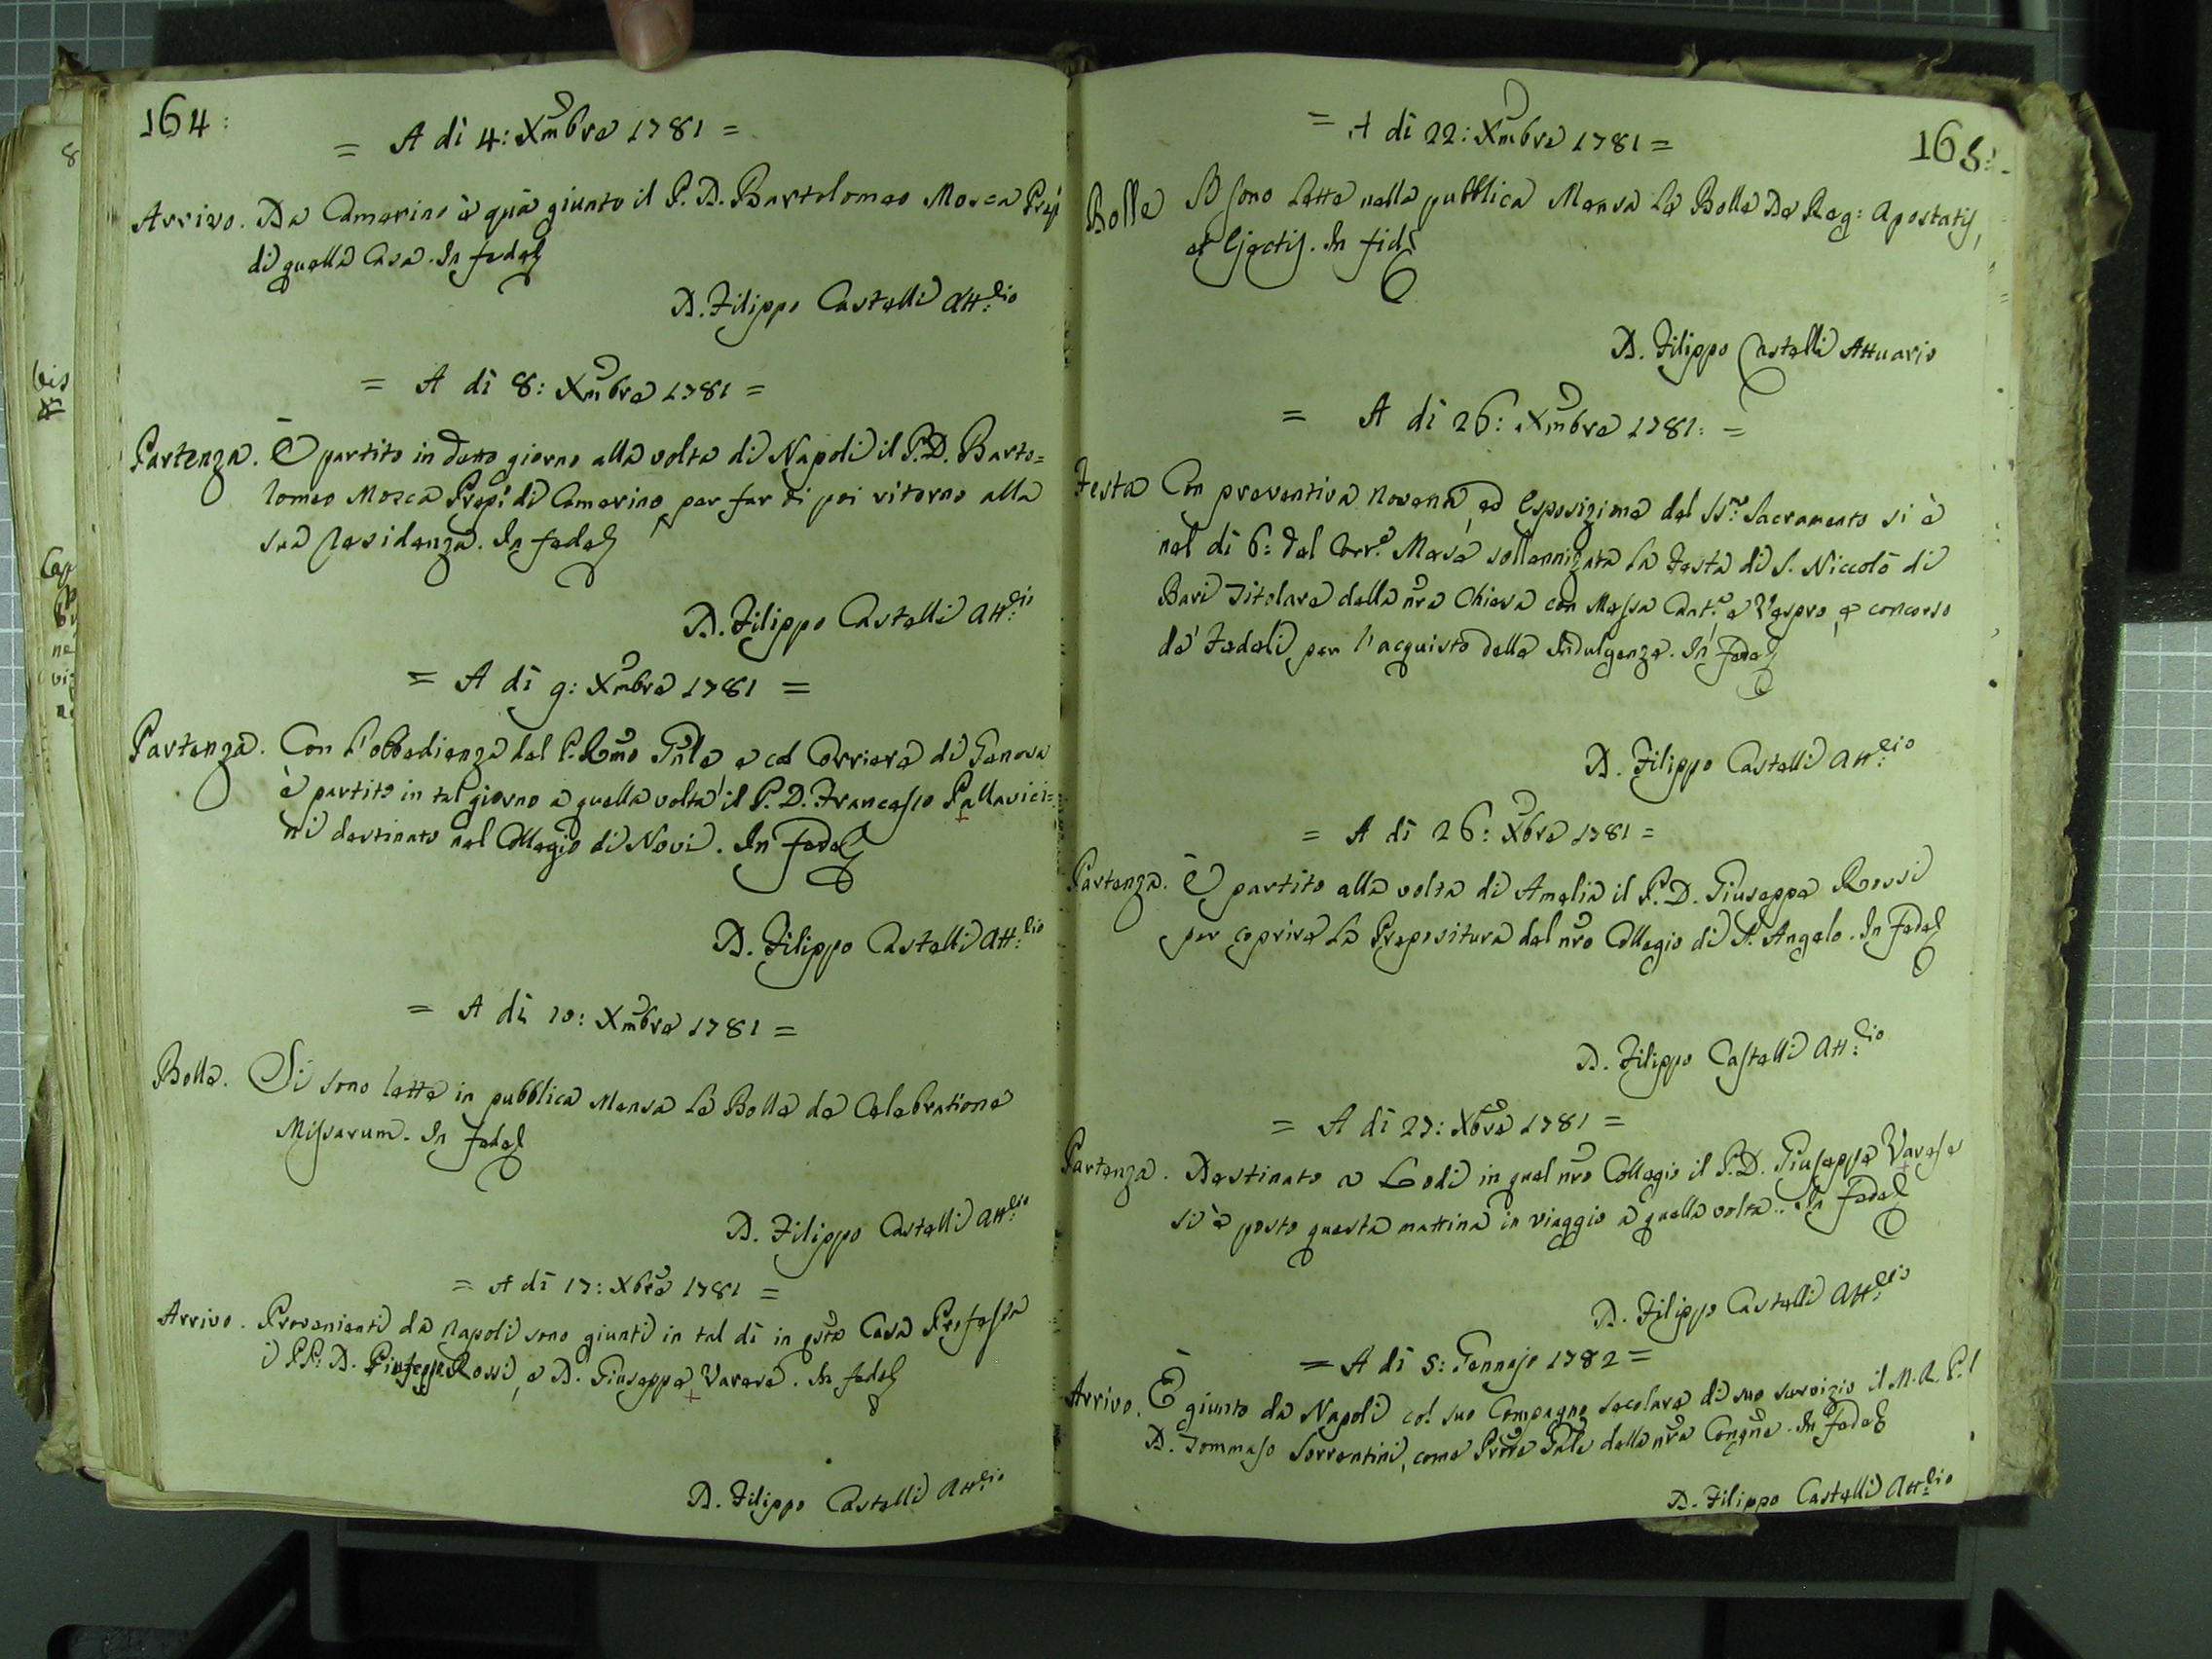 164:
= A di 4: Xmbre 1781 =
Arrivo. Da Camerino è quà giunto il P. D. Bartolomeo Mosca Prep.
di quella Casa. In fede
D. Filippo Castelli Att:rio
= A di 8: Xmbre 1781 =
Partenza. È partito in detto giorno alla volta di Napoli il P. D. Barto=
lomeo Mosca Prep: di Camerino, per far di poi ritorno alla
sua Residenza. In fede
D. Filippo Castelli Att:rio
= A di 9: Xmbre 1781 =
Partenza. Con l'obbedienza del P. Rmo Gnle e col Corriere di Genova
è partito in tal giorno a quella volta il P. D. Francesco Pallavici=
ni destinato nel Collegio di Novi. In fede
D. Filippo Castelli Att:rio
= A di 10: Xmbre 1781 =
Bolle. Si sono lette in pubblica Mensa le Bolle de Celebratione
Missarum. In fede
D. Filippo Castelli Att:rio
= A di 17: Xbre 1781 =
Arrivo. Provenienti da Napoli sono giunti in tal di in qsta Casa Professa
i PP. D. Giuseppe Rossi, e D. Giuseppe Varese. In fede
D. Filippo Castelli Att:rio
165:
= A di 22: Xmbre 1781 =
Bolle Si sono lette nella pubblica Mensa le Bolle De Reg: Apostatis,
et Ejectis. In fide
D. Filippo Castelli Attuario
= A di 26: Xmbre 1781: =
Festa Con preventiva Novena, ed Esposizione del SSmo Sacramento si è
nel di 6: del Corre Mese sollennizata la Festa di S. Niccolò di
Bari Titolare della nra Chiesa con Messa Cant:a e Vespro, e concorso
de' Fedeli per l'acquisto delle Indulgenze. In fede
D. Filippo Castelli Att:rio
= A di 26: Xbre 1781 =
Partenza. È partito alla volta di Amelia il P. D. Giuseppe Rossi
per coprire la Prepositura del nro Collegio di S. Angelo. In fede
D. Filippo Castelli Att:rio
= A di 27: Xbre 1781 =
Partenza. Destinato a Lodi in quel nro Collegio il P. D. Giuseppe Varese
si è posto questa mattina in viaggio a quella volta.. In fede
D. Filippo Castelli Att:rio
= A di 5: Gennajo 1782 =
Arrivo. È giunto da Napoli col suo Compagno secolare di suo servizio il M. R. P.
D. Tommaso Sorrentini, come Prore Gnle della nra Congne. In fede
D. Filippo Castelli Att:rio